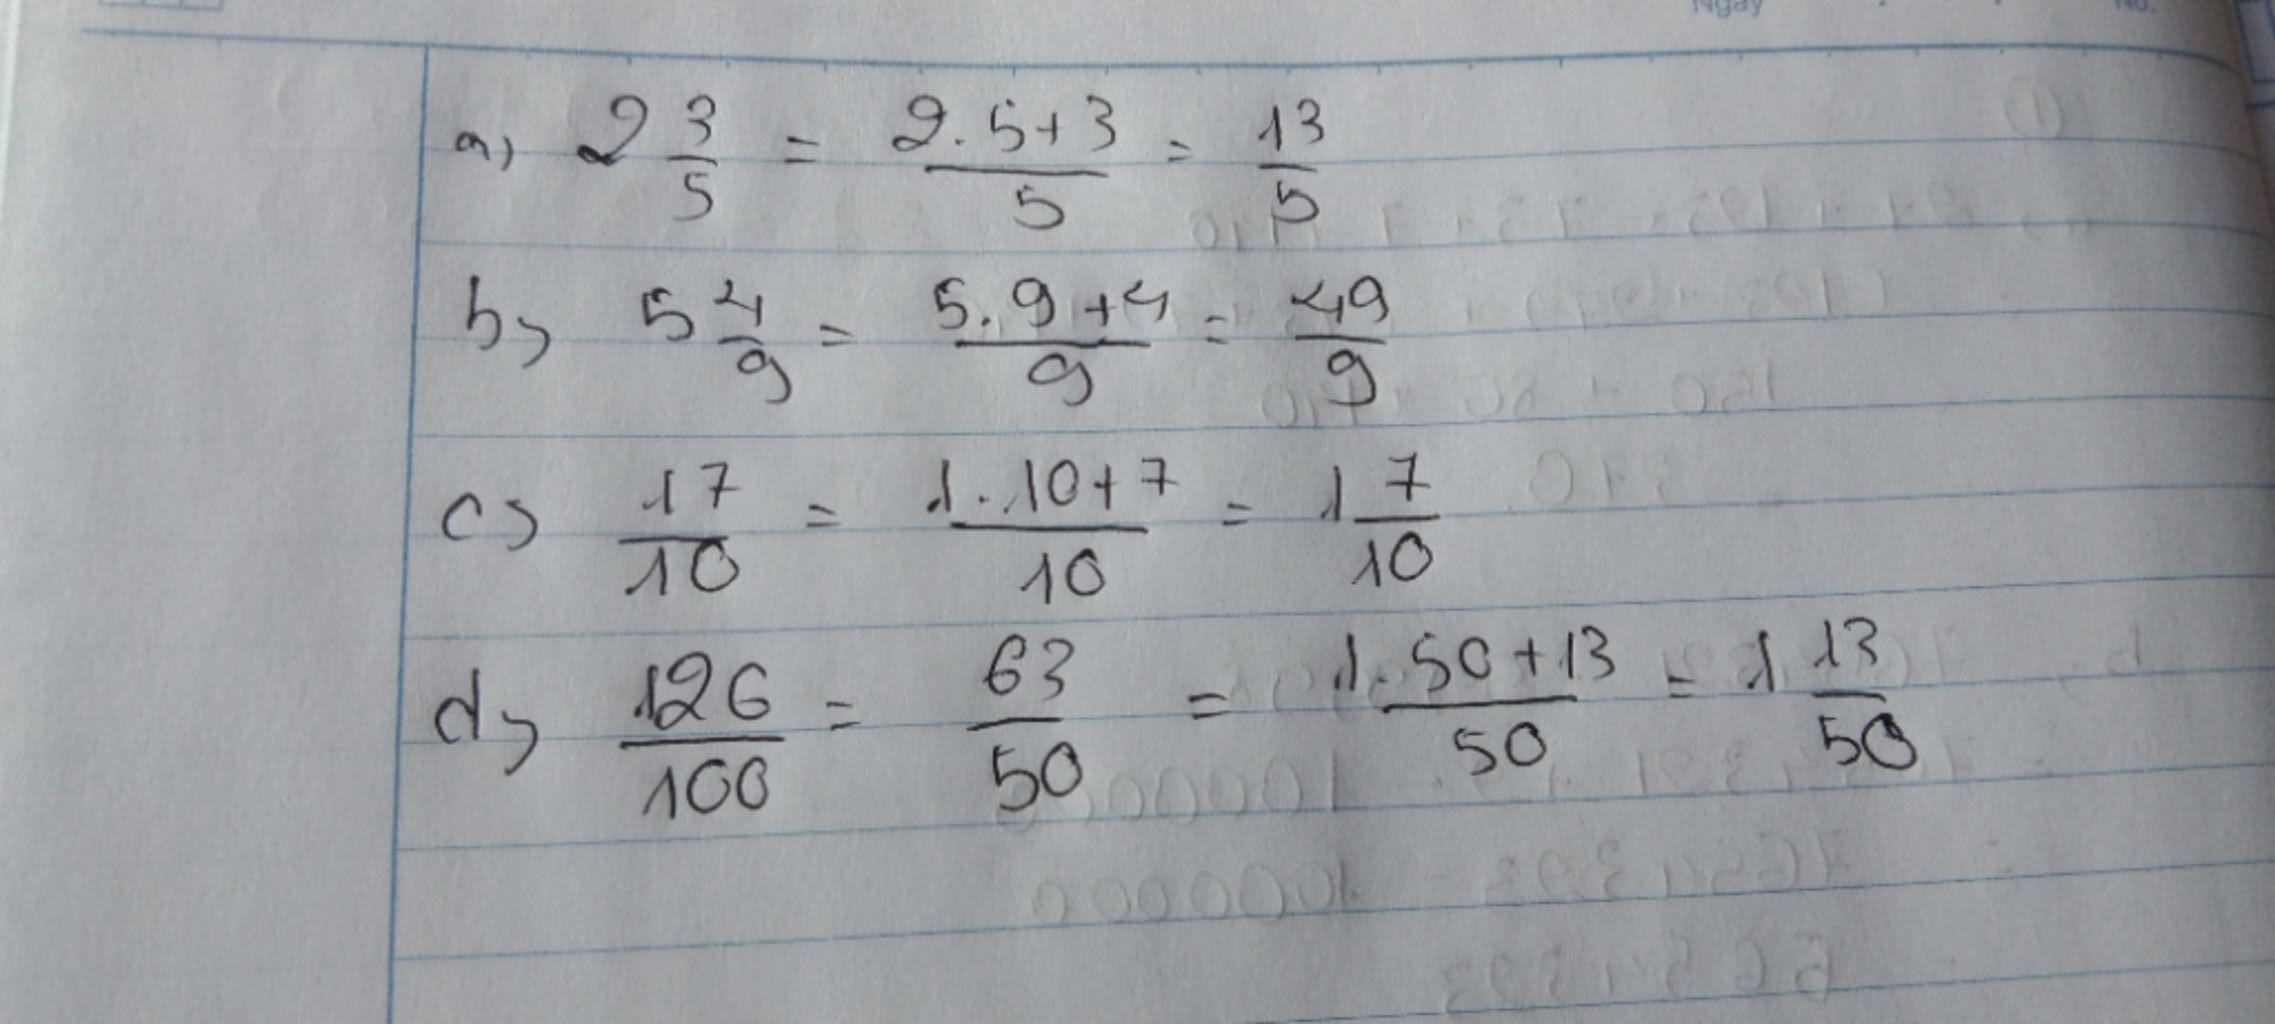 Ngày No.
a) 2 3/5 = (2.5+3)/5 = 13/5
b) 5 4/9 = (5.9+4)/9 = 49/9
c) 17/10 = (1.10+7)/10 = 1 7/10
d) 126/100 = 63/50 = (1.50+13)/50 = 1 13/50